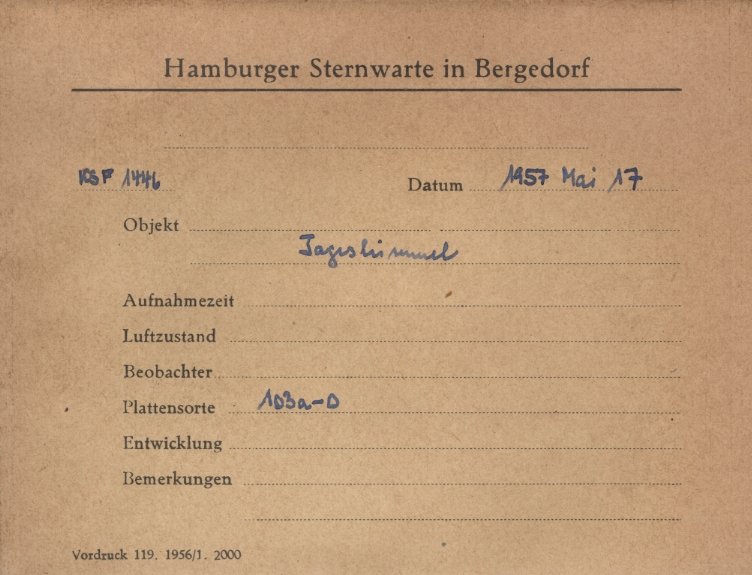 Hamburger Sternwarte in Bergedorf
KSF 1446 Datum 1957 Mai 17
Objekt
Tageshimmel
Aufnahmezeit
Luftzustand
Beobachter
Plattensorte 103a-D
Entwicklung
Bemerkungen
Vordruck 119. 1956/1. 2000